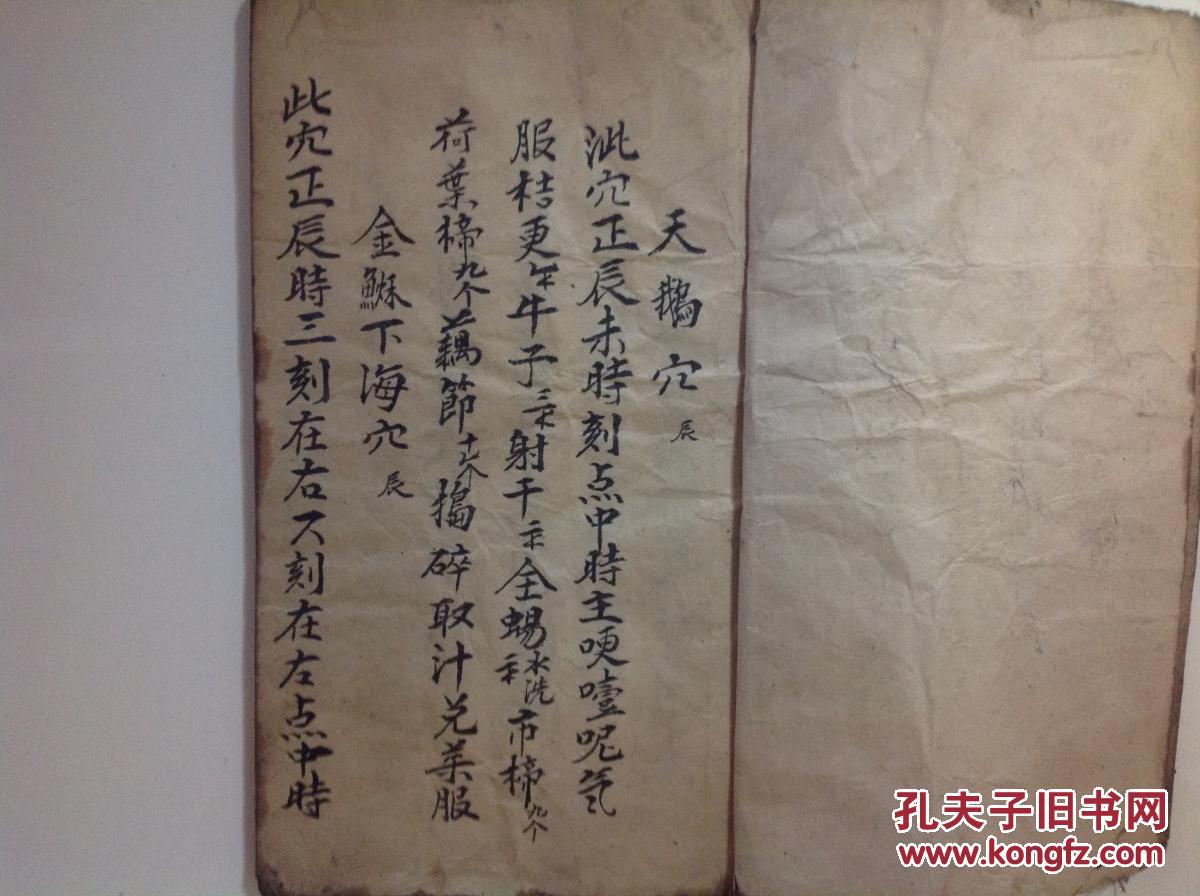 天鵝穴 辰
泚穴正辰未時刻点中時主哽噎呃气
服桔更牛子射干全蝎水洗市楴九个
荷葉楴九个藕節十个搗碎取汁兑菜服
金鮴下海穴 辰
此穴正辰時三刻在右刻在左点中時
孔夫子旧书网
www.kongfz.com